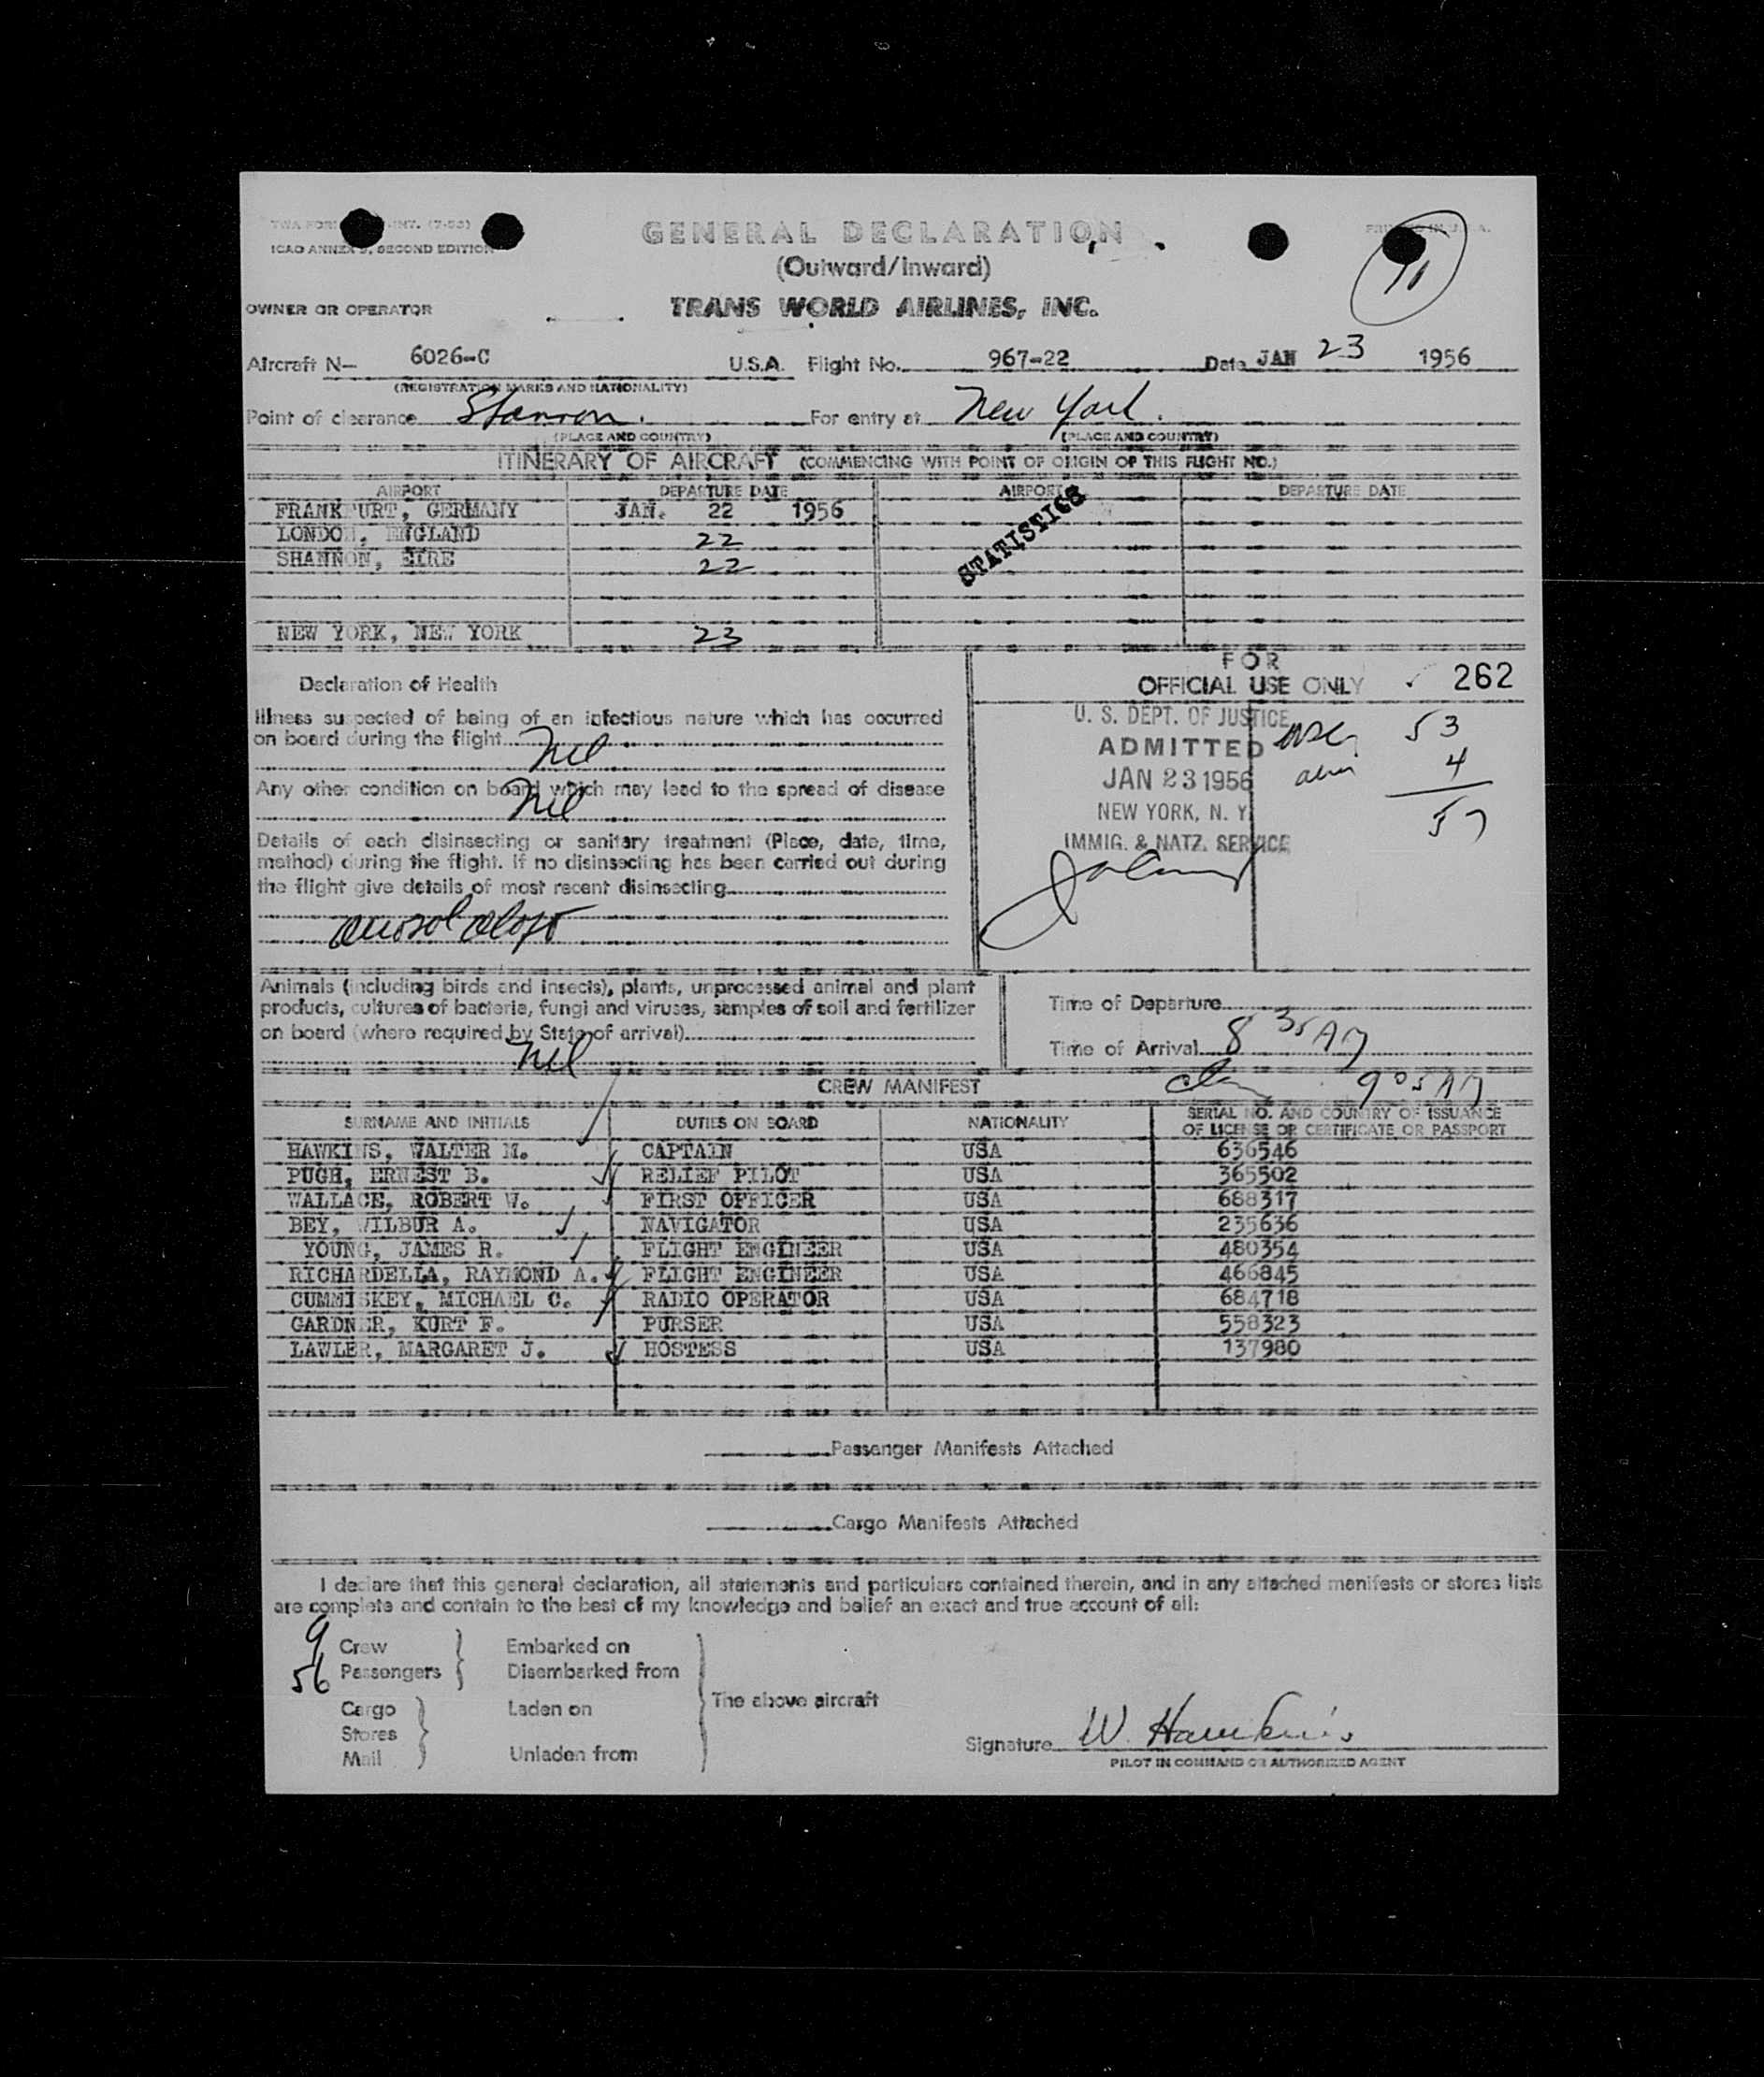 GENERAL DECLARATION
(Outward/Inward)
ICAO ANNEX 9, SECOND EDITION
OWNER OR OPERATOR TRANS WORLD AIRLINES, INC.
Aircraft N— 6026-C U.S.A. Flight No. 967-22 Date JAN 23 1956
(REGISTRATION MARKS AND NATIONALITY)
Point of clearance Shannon. For entry at New York.
(PLACE AND COUNTRY) (PLACE AND COUNTRY)
ITINERARY OF AIRCRAFT (COMMENCING WITH POINT OF ORIGIN OF THIS FLIGHT NO.)
AIRPORT DEPARTURE DATE AIRPORT DEPARTURE DATE
FRANKFURT, GERMANY JAN. 22 1956
LONDON, ENGLAND 22
SHANNON, EIRE 22
STATISTICS
NEW YORK, NEW YORK 23
FOR
OFFICIAL USE ONLY 262
Declaration of Health
Illness suspected of being of an infectious nature which has occurred
on board during the flight Nil
Any other condition on board which may lead to the spread of disease
Nil
Details of each disinsecting or sanitary treatment (Place, date, time,
method) during the flight. If no disinsecting has been carried out during
the flight give details of most recent disinsecting
aerosol
U. S. DEPT. OF JUSTICE
ADMITTED
JAN 23 1956
NEW YORK, N. Y.
IMMIG. & NATZ. SERVICE
usc 53
alien 4
57
Animals (including birds and insects), plants, unprocessed animal and plant
products, cultures of bacteria, fungi and viruses, samples of soil and fertilizer
on board (where required by State of arrival)
Nil
Time of Departure
Time of Arrival 8 35 AM
9 05 AM
CREW MANIFEST
SURNAME AND INITIALS DUTIES ON BOARD NATIONALITY SERIAL NO. AND COUNTRY OF ISSUANCE
OF LICENSE OR CERTIFICATE OR PASSPORT
HAWKINS, WALTER M. CAPTAIN USA 636546
PUGH, ERNEST B. RELIEF PILOT USA 365502
WALLACE, ROBERT W. FIRST OFFICER USA 688317
BEY, WILBUR A. NAVIGATOR USA 235636
YOUNG, JAMES R. FLIGHT ENGINEER USA 480354
RICHARDELLA, RAYMOND A. FLIGHT ENGINEER USA 466845
CUMMISKEY, MICHAEL C. RADIO OPERATOR USA 684718
GARDNER, KURT F. PURSER USA 558323
LAWLER, MARGARET J. HOSTESS USA 137980
Passenger Manifests Attached
Cargo Manifests Attached
I declare that this general declaration, all statements and particulars contained therein, and in any attached manifests or stores lists
are complete and contain to the best of my knowledge and belief an exact and true account of all:
9 Crew Embarked on
56 Passengers Disembarked from
Cargo Laden on The above aircraft
Stores
Mail Unladen from
Signature W. Hawkins
PILOT IN COMMAND OR AUTHORIZED AGENT